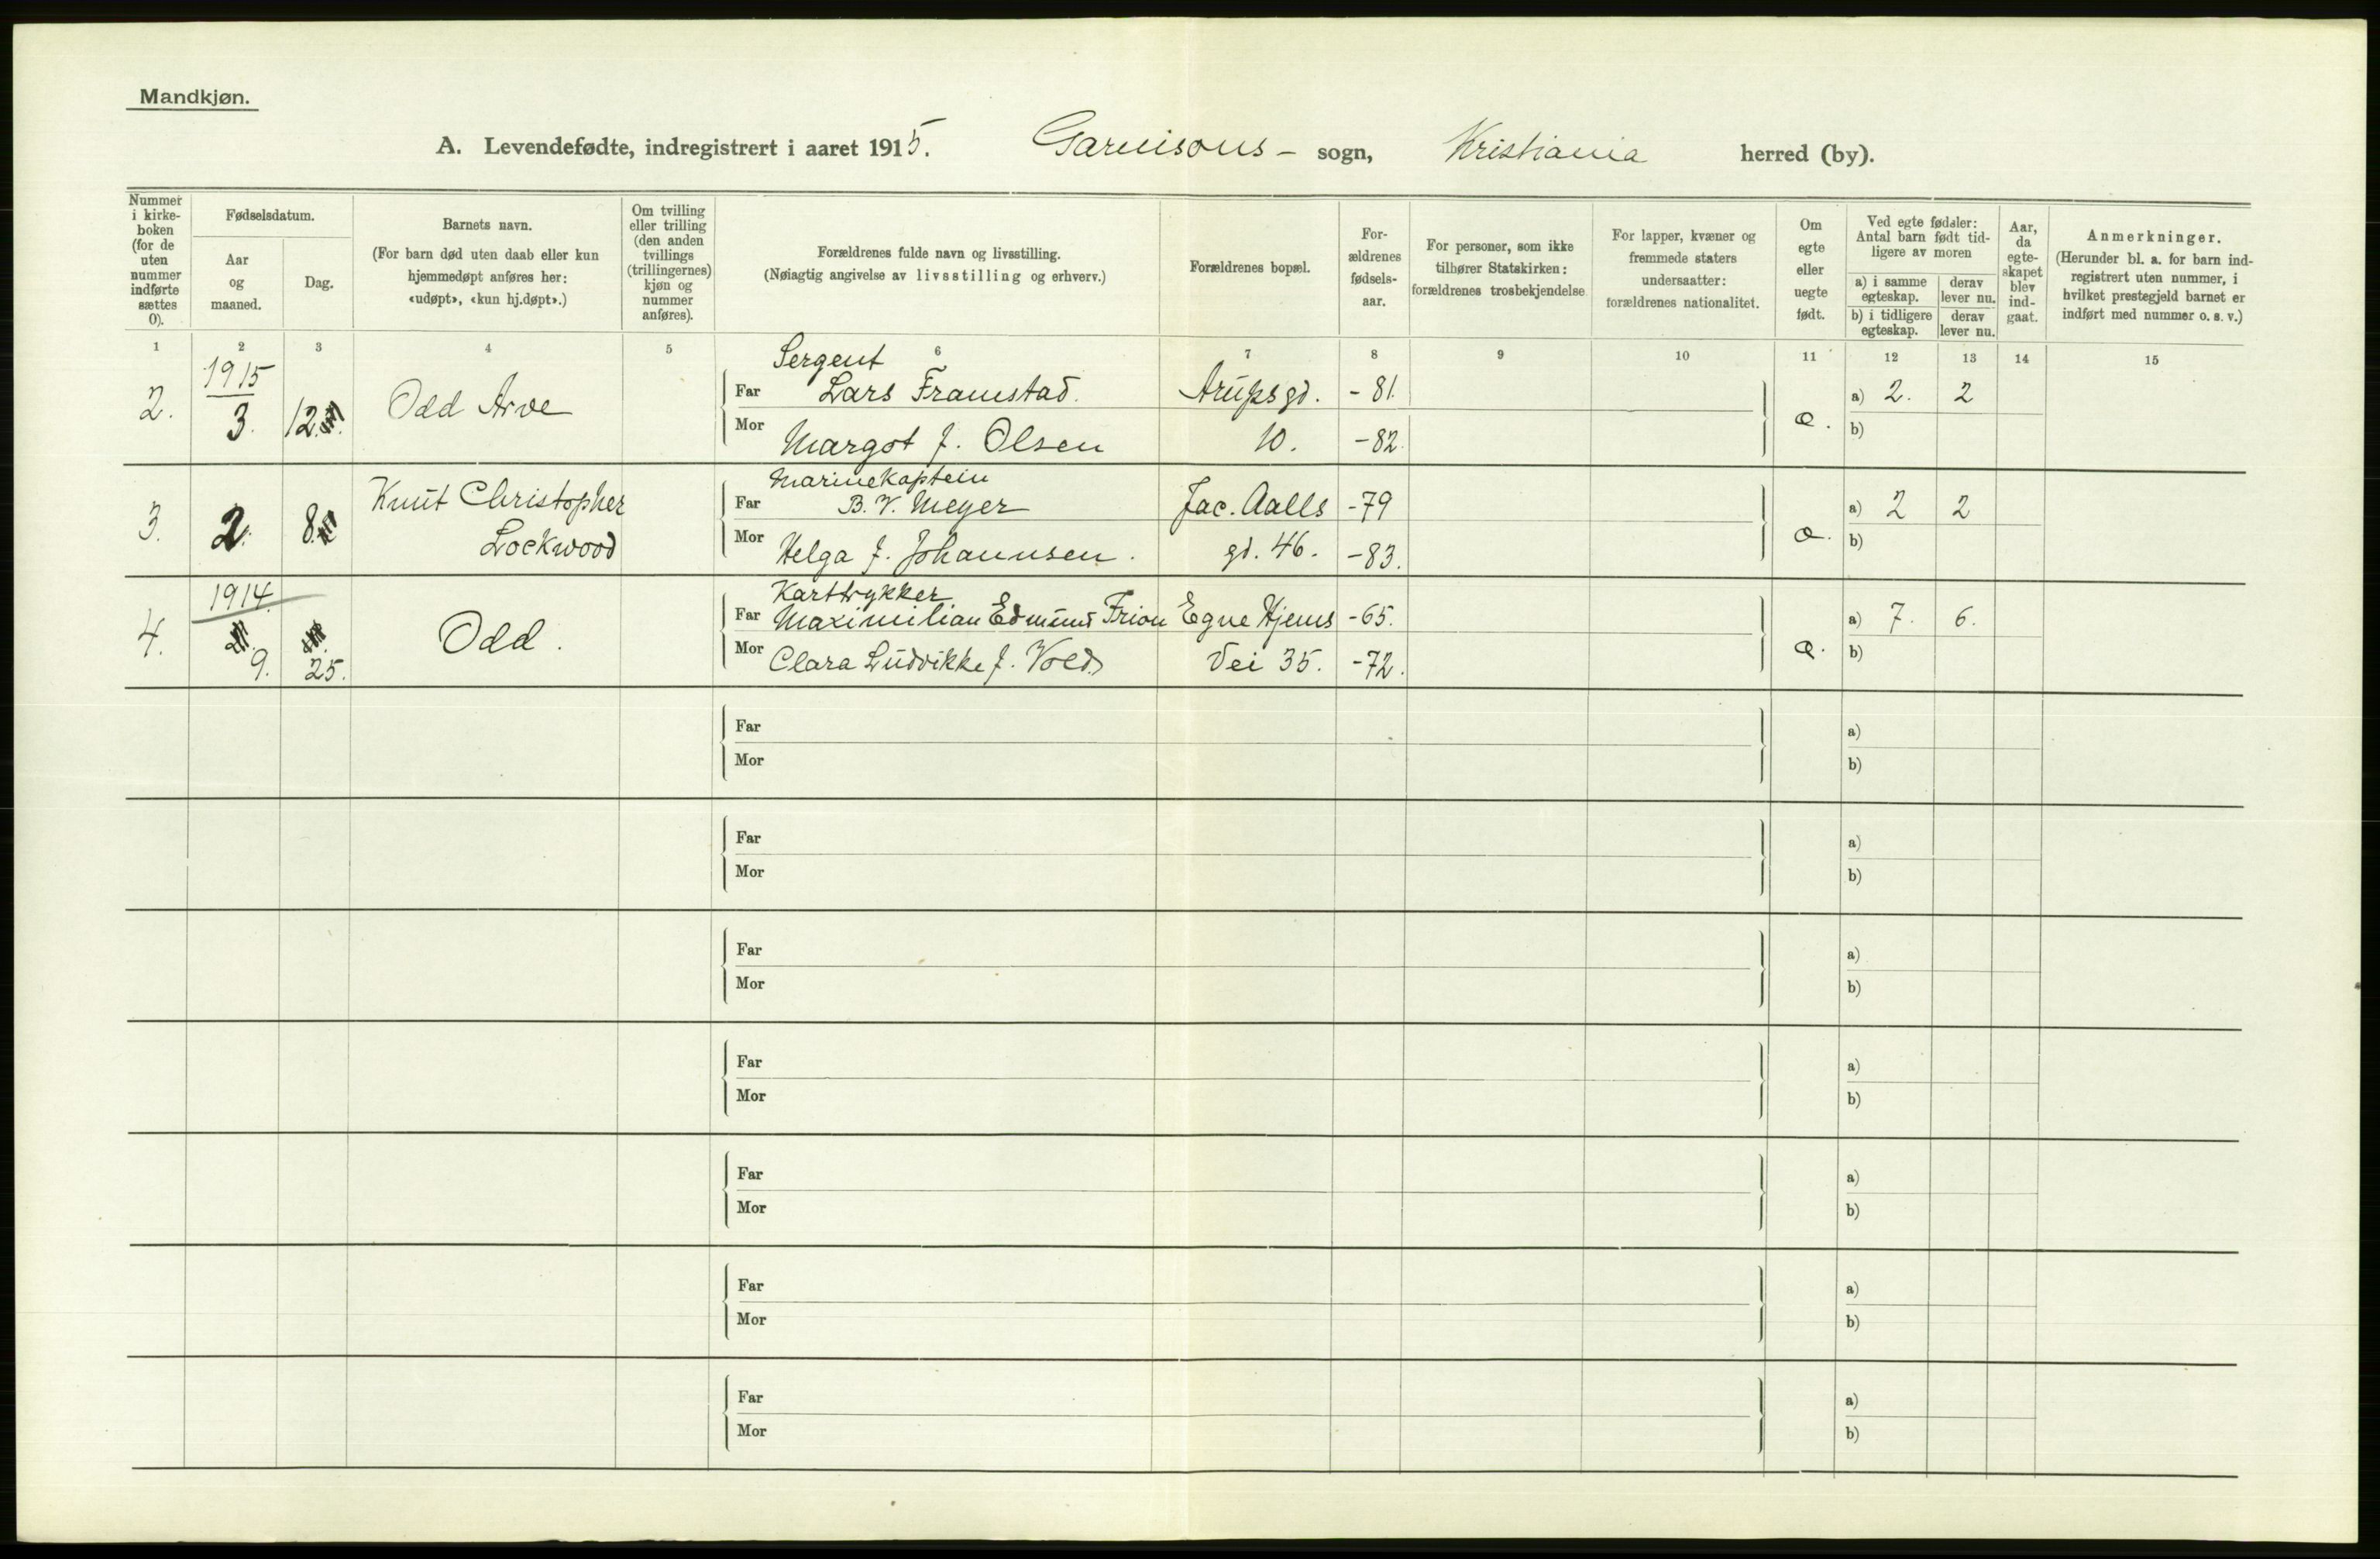 Mandkjøn.
A. Levendefødte, indregistrert i aaret 1915. Garnisons- sogn, Kristiania herred (by).
Nummer i kirkeboken (for de uten nummer indførte sættes 0).
Fødselsdatum.
Aar og maaned.
Dag.
Barnets navn.
(For barn død uten daab eller kun hjemmedøpt anføres her: «udøpt», «kun hj.døpt».)
Om tvilling eller trilling (den anden tvillings (trillingernes) kjøn og nummer anføres).
Forældrenes fulde navn og livsstilling.
(Nøiagtig angivelse av livsstilling og erhverv.)
Forældrenes bopæl.
Forældrenes fødselsaar.
For personer, som ikke tilhører Statskirken: forældrenes trosbekjendelse
For lapper, kvæner og fremmede staters undersaatter: forældrenes nationalitet.
Om egte eller uegte født.
Ved egte fødsler: Antal barn født tidligere av moren
a) i samme egteskap. derav lever nu.
b) i tidligere egteskap. derav lever nu.
Aar, da egteskapet blev indgaat.
Anmerkninger.
(Herunder bl. a. for barn indregistrert uten nummer, i hvilket prestegjeld barnet er indført med nummer o. s. v.)
1 2 3 4 5 6 7 8 9 10 11 12 13 14 15
1915 Sergent
2. 3. 12. Odd Arve Far Lars Framstad. Arupsgd. -81. a) 2. 2
Mor Margot f. Olsen 10. -82. e. b)
Marinekaptein
3. 2. 8. Knut Christopher Far B. V. Meyer Jac. Aalls -79 a) 2 2
Lockwood Mor Helga f. Johannsen. gd. 46. -83. e. b)
1914. Karttrykker
4. Odd. Far Maximilian Edmund Frion Egne Hjems -65. a) 7. 6.
9. 25. Mor Clara Ludvikke f. Vold Vei 35. -72. e. b)
Far a)
Mor b)
Far a)
Mor b)
Far a)
Mor b)
Far a)
Mor b)
Far a)
Mor b)
Far a)
Mor b)
Far a)
Mor b)